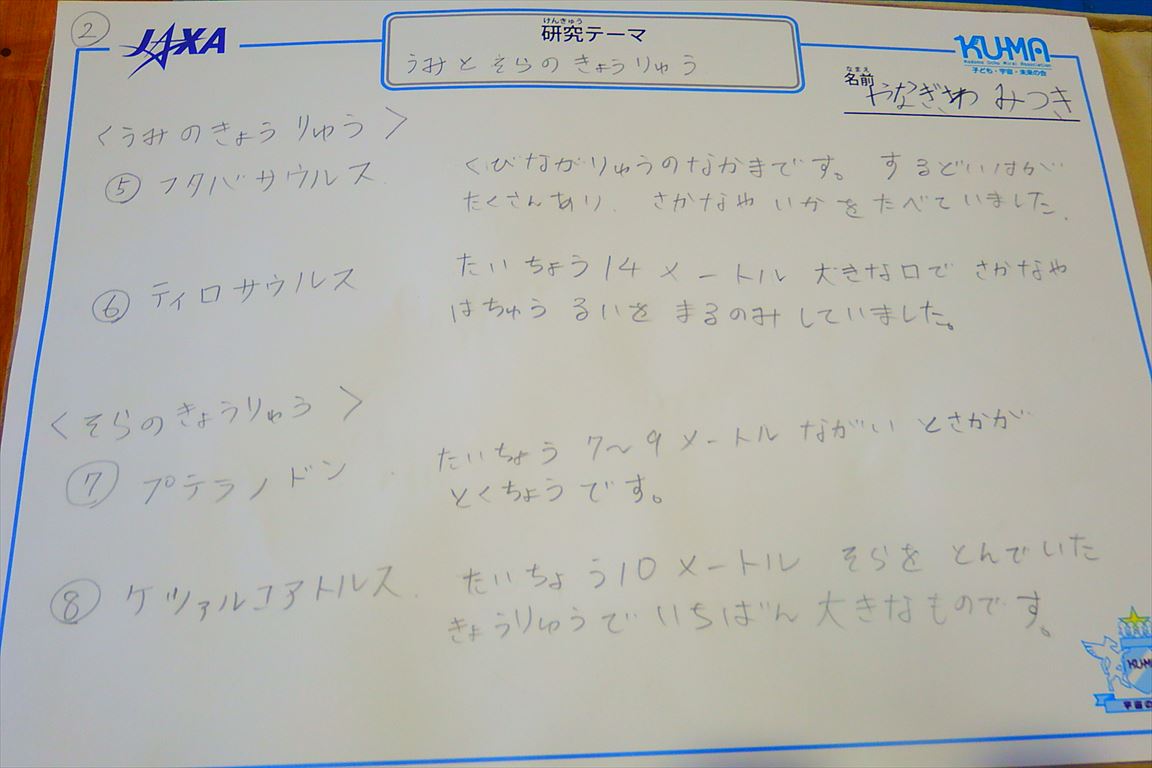 ②
JAXA
けんきゅう
研究テーマ
うみと そらの きょうりゅう
KUMA
Kodomo Uchu Mirai Association
子ども・宇宙・未来の会
なまえ
名前 やなぎさわ みつき
〈うみのきょうりゅう〉
⑤ フタバサウルス くびながりゅうのなかまです。 するどいはが
たくさんあり、 さかなや いかを たべていました。
⑥ ティロサウルス たいちょう14メートル 大きな口で さかなや
はちゅうるいを まるのみしていました。
〈そらのきょうりゅう〉
⑦ プテラノドン たいちょう 7〜9メートル ながい とさかが
とくちょうです。
⑧ ケツァルコアトルス たいちょう10メートル そらを とんでいた
きょうりゅうで いちばん 大きなものです。
KUMA